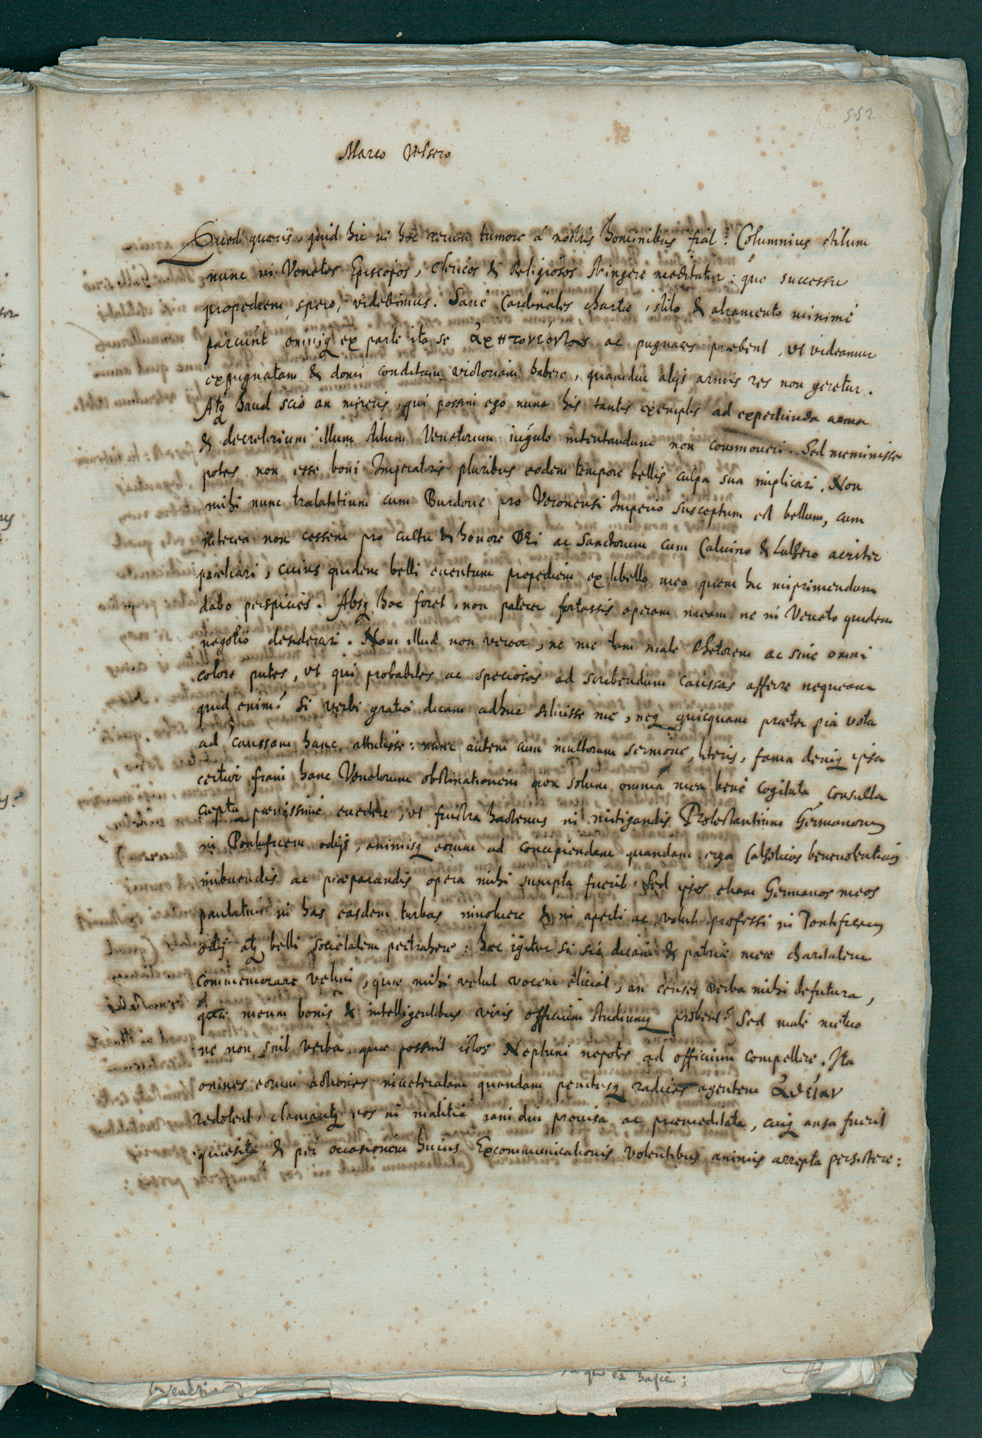 552
Marco Velsero
Quod quæris, quid hic in hoc rerum tumore à nostris hominibus fiat? Columnius stilum
nunc in Venetos Episcopos, Clericos & Religiosos stringere meditatur: quo successu
propediem, spero, videbimus. Sanè Cardinales chartæ, stilo & atramento minimè
parcunt omniq ex parte ita se ac pugnaces præbent, ut videamur
expugnatam & domi conditam victoriam habere, quamdiu alijs armis res non geretur.
Atq haud scio an mireris, qui possim ego nunc his tantis exemplis ad expedienda arma
& decretorium illum stilum Venetorum iugulo intentandum non commoveri. Sed meminisse
potes non esse boni Imperatoris pluribus eodem tempore bellis culpa sua implicari. Non
mihi nunc tralatitium cum Burdone pro Veronensi Imperio susceptum est bellum, cum
interea non cessem pro cultu & honore DEi ac Sanctorum cum Calvino & Luthero acriter
præliari, cuius quidem belli eventum propediem ex libello meo quem hic imprimendum
dabo perspicies. Absq hoc foret, non paterer fortassis operam meam ne in Veneto quidem
negotio desiderari. Nam illud non vereor, ne me tam malè Rhetorem ac sine omni
colore putes, ut qui probabiles ac speciosas ad scribendum caussas afferre nequeam
quid enim? Si verbi gratiâ dicam adhuc siluisse me, neq quicquam præter pia vota
ad caussam hanc attulisse: nunc autem cum multorum sermone, literis, fama deniq ipsa
certior fiam hanc Venetorum obstinationem non solum omnia mea benè cogitata consulta
cœpta pessime evertere, ut frustra hactenus in mitigandis Protestantium Germanorum
in Pontificem odijs, animisq eorum ad concipiendam quandam erga Catholicos benevolentiam
imbuendis ac præparandis opera mihi sumpta fuerit. Sed ipsos etiam Germanos meos
paulatim in has easdem turbas involvere & in aperti ac velut professi in Pontificem
odij atq belli societatem pertrahere: hæc igitur si sic dicam & patriæ meæ charitatem
commemorare velim, quæ mihi velut vocem eliciat, an censes verba mihi defutura,
quæ meum bonis & intelligentibus viris officium studiumq probent? Sed malè metuo
ne non sint verba quæ possint istos Neptuni nepotes ad officium compellere. Ita
omnes eorum actiones inveteratam quandam penitusq radices agentem
redolent, clamantq eos in malitia iam diu provisa ac præmeditata, cuiq ansa fuerit
quæsita & per occasionem huius Excommunicationis volentibus animis arrepta persistere: